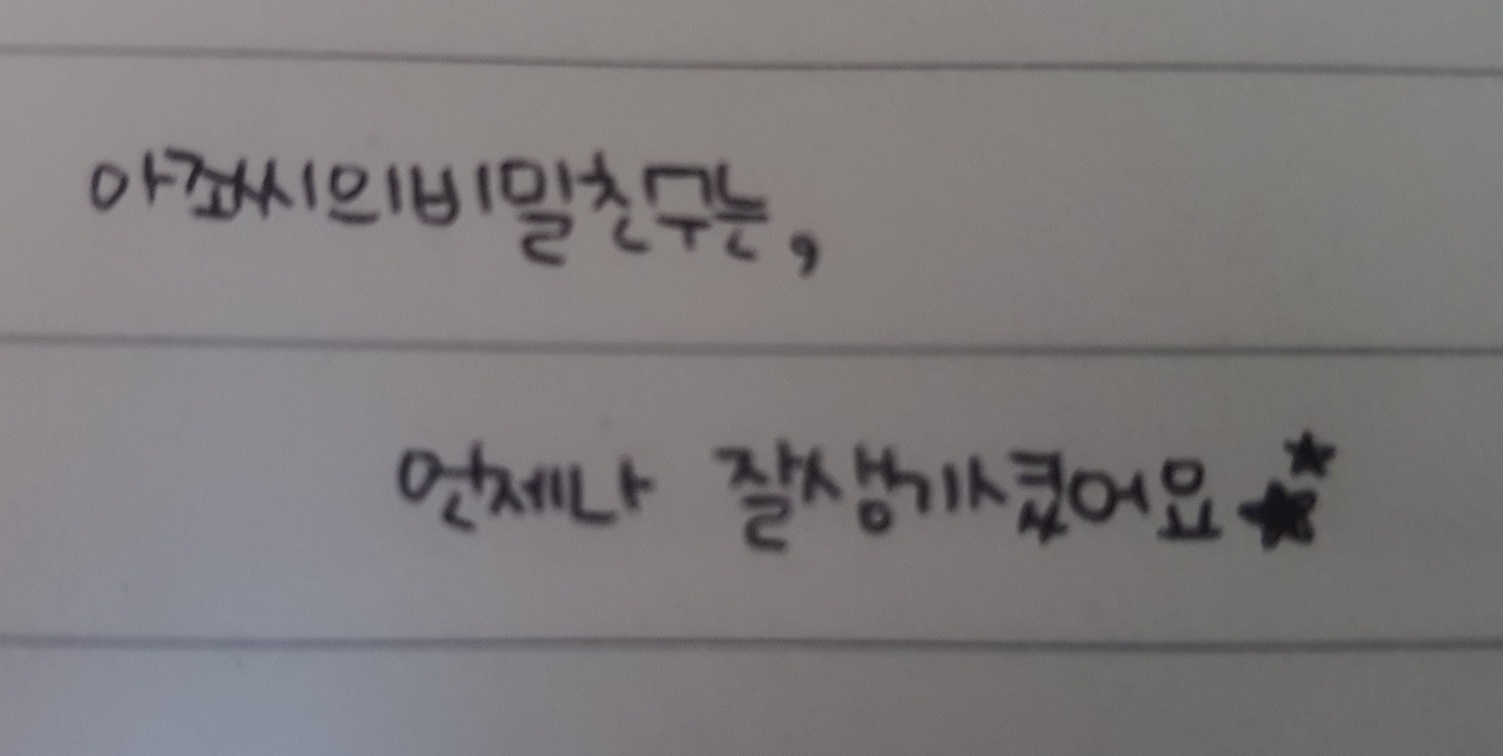 아죠씨의비밀친구는,
언제나 잘생기셨어요★★